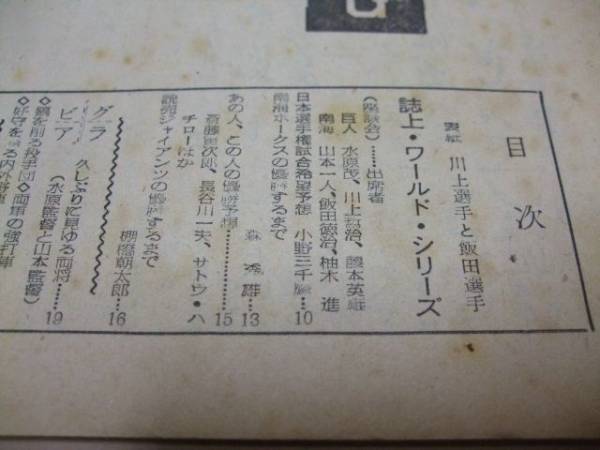 目次
表紙 川上選手と飯田選手
誌上・ワールド・シリーズ
(座談会)……出席者
巨人 水原茂、川上哲治、藤本英雄
南海 山本一人、飯田徳治、柚木進
日本選手権試合希望予想 小野三千麿…10
南海ホークスの優勝するまで
森秀雄…13
あの人、この人の優勝予想……15
斎藤寅次郎、長谷川一夫、サトウ・ハ
チローほか
読売ジャイアンツの優勝するまで
棚橋朝太郎…16
グラビア
久しぶりに見ゆる両将……19
(水原監督と山本監督)
◇鎬を削る投手団◇両軍の強打陣